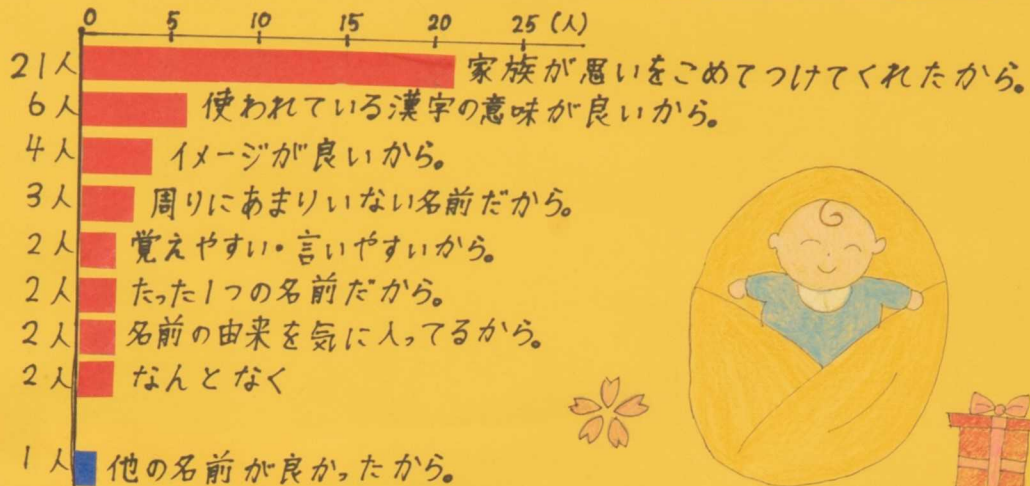 0 5 10 15 20 25 (人)
21人 家族が思いをこめてつけてくれたから。
6人 使われている漢字の意味が良いから。
4人 イメージが良いから。
3人 周りにあまりいない名前だから。
2人 覚えやすい・言いやすいから。
2人 たった1つの名前だから。
2人 名前の由来を気に入ってるから。
2人 なんとなく
1人 他の名前が良かったから。